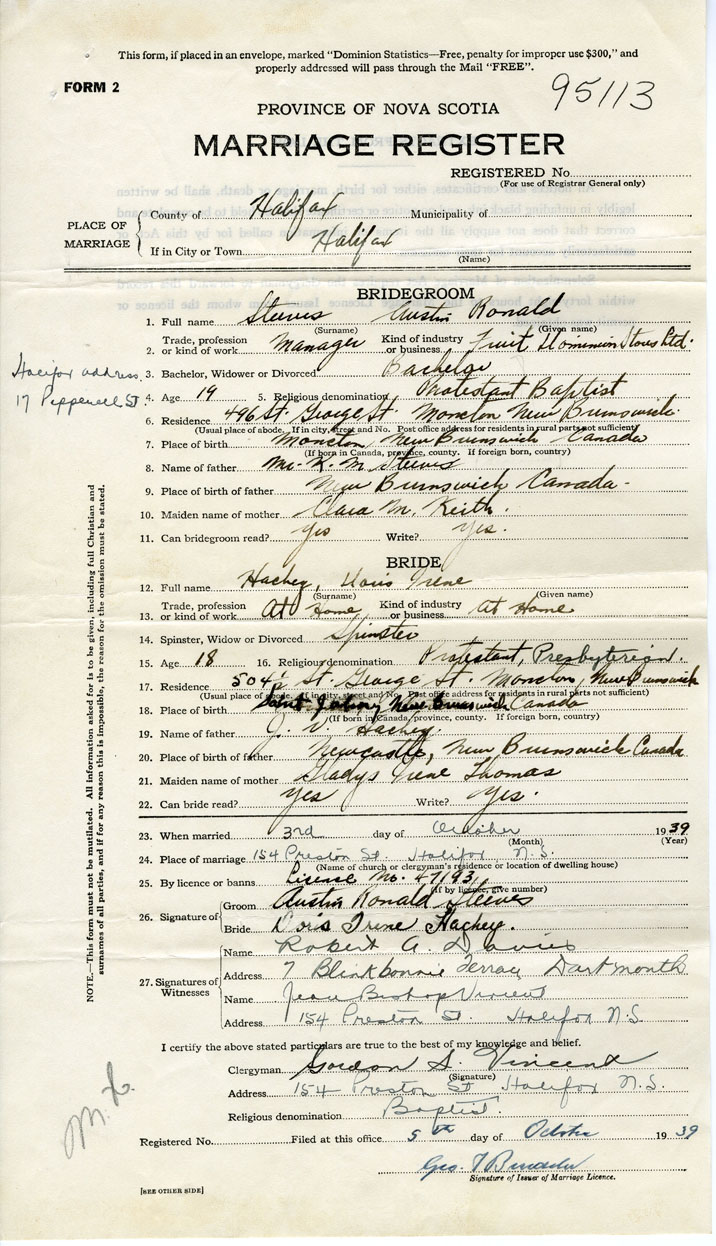 This form, if placed in an envelope, marked "Dominion Statistics—Free, penalty for improper use $300," and
properly addressed will pass through the Mail "FREE".
FORM 2
95113
PROVINCE OF NOVA SCOTIA
MARRIAGE REGISTER
REGISTERED No.
(For use of Registrar General only)
PLACE OF MARRIAGE
County of Halifax Municipality of
If in City or Town Halifax
(Name)
BRIDEGROOM
1. Full name Steeves Austin Ronald
(Surname) (Given name)
2. Trade, profession or kind of work Manager Kind of industry or business Fruit Dominion Stores Ltd.
Halifax address
17 Pepperell St
3. Bachelor, Widower or Divorced Bachelor
4. Age 19 5. Religious denomination Protestant Baptist
6. Residence 496 St. George St. Moncton New Brunswick.
(Usual place of abode. If in city, street and No. Post office address for residents in rural parts not sufficient)
7. Place of birth Moncton, New Brunswick Canada
(If born in Canada, province, county. If foreign born, country)
8. Name of father Mr. K. M. Steeves
9. Place of birth of father New Brunswick Canada.
10. Maiden name of mother Clara M. Keith.
11. Can bridegroom read? Yes Write? Yes.
BRIDE
12. Full name Hachey, Doris Irene
(Surname) (Given name)
13. Trade, profession or kind of work At Home Kind of industry or business At Home
14. Spinster, Widow or Divorced Spinster
15. Age 18 16. Religious denomination Protestant, Presbyterian.
17. Residence 504½ St. George St. Moncton, New Brunswick
(Usual place of abode. If in city, street and No. Post office address for residents in rural parts not sufficient)
18. Place of birth Saint John, New Brunswick Canada
(If born in Canada, province, county. If foreign born, country)
19. Name of father J. V. Hachey.
20. Place of birth of father Newcastle, New Brunswick Canada
21. Maiden name of mother Gladys Irene Thomas
22. Can bride read? Yes Write? Yes.
23. When married 3rd day of October 1939
(Month) (Year)
24. Place of marriage 154 Preston St. Halifax N.S.
(Name of church or clergyman's residence or location of dwelling house)
25. By licence or banns License No. 47193
(If by licence, give number)
26. Signature of
Groom Austin Ronald Steeves
Bride Doris Irene Hachey.
27. Signatures of Witnesses
Name Robert A. Davies
Address 7 Blinkbonnie Terrace Dartmouth
Name Jean Bishop Vincent
Address 154 Preston St. Halifax N.S.
I certify the above stated particulars are true to the best of my knowledge and belief.
Clergyman Gordon S. Vincent
(Signature)
Address 154 Preston St Halifax N.S.
Religious denomination Baptist.
Registered No. Filed at this office 5th day of October 1939
Signature of Issuer of Marriage Licence.
[SEE OTHER SIDE]
NOTE.—This form must not be mutilated. All information asked for is to be given, including full Christian and
surnames of all parties, and if for any reason this is impossible, the reason for the omission must be stated.